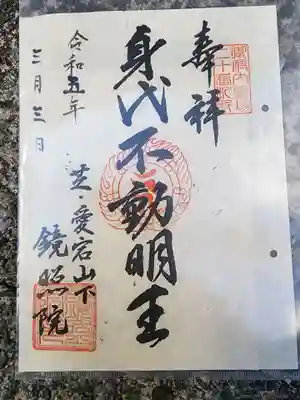 奉拝
身代不動明王
芝・愛宕山下
鏡照院
令和五年
三月三日